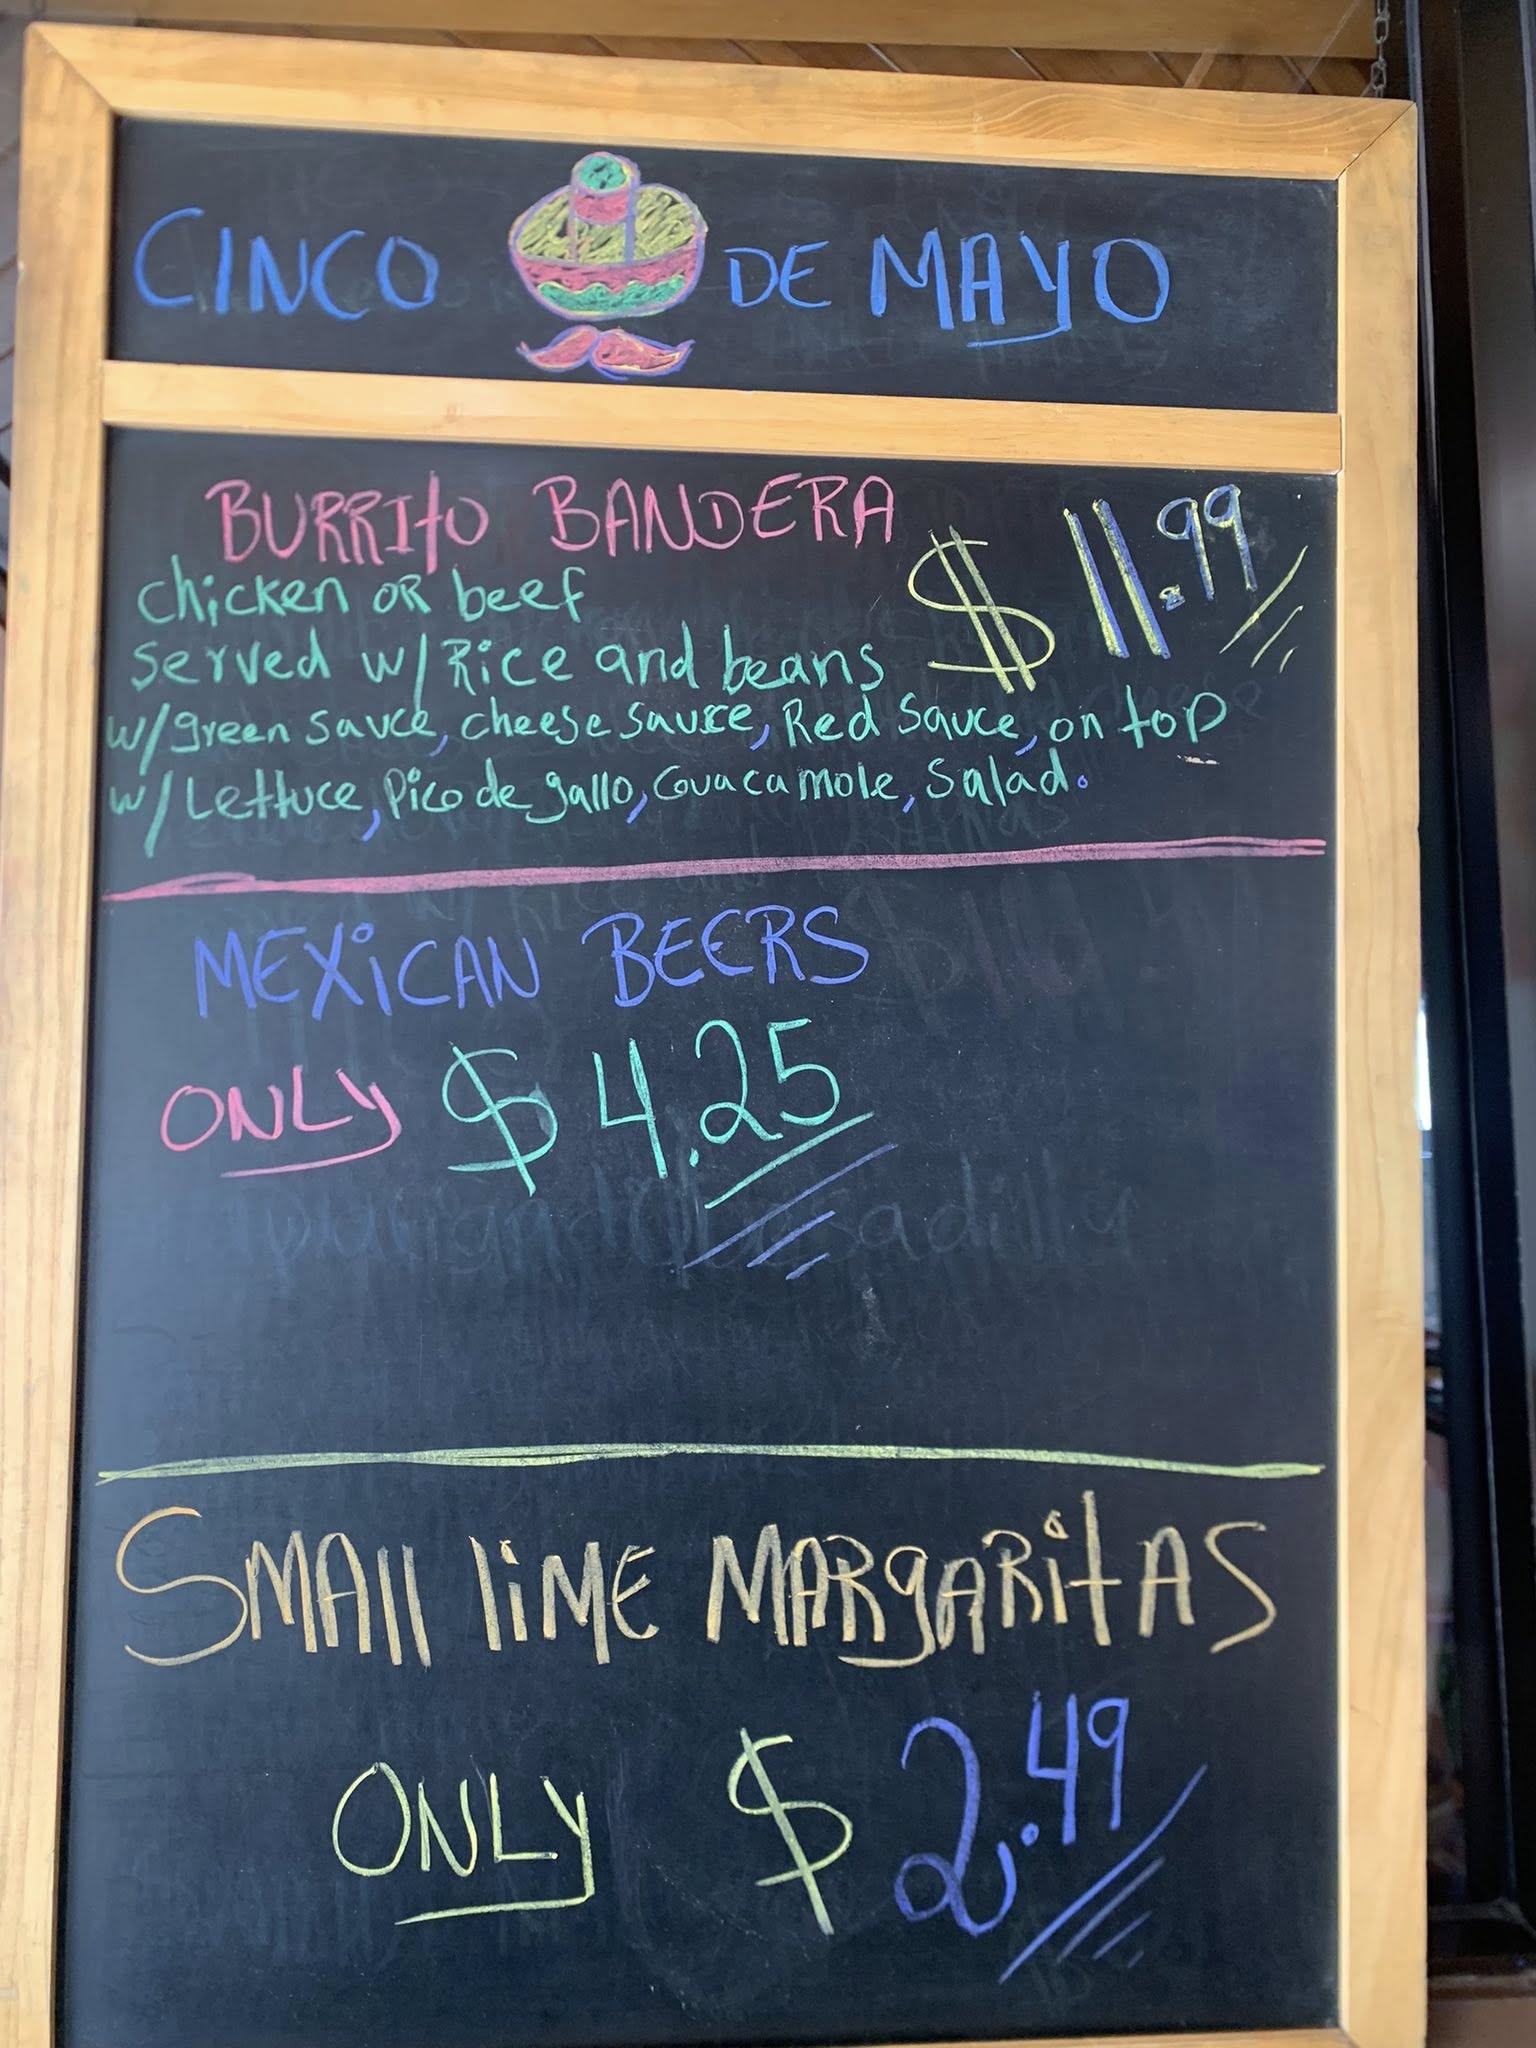 CINCO DE MAYO
BURRITO BANDERA
$11.99
chicken OR beef
served w/ Rice and beans
w/green sauce, cheese sauce, Red sauce, on top
w/ Lettuce, Pico de gallo, Guacamole, Salad.
MEXICAN BEERS
ONLY $4.25
SMAll liME MARgARitAS
ONLY $2.49